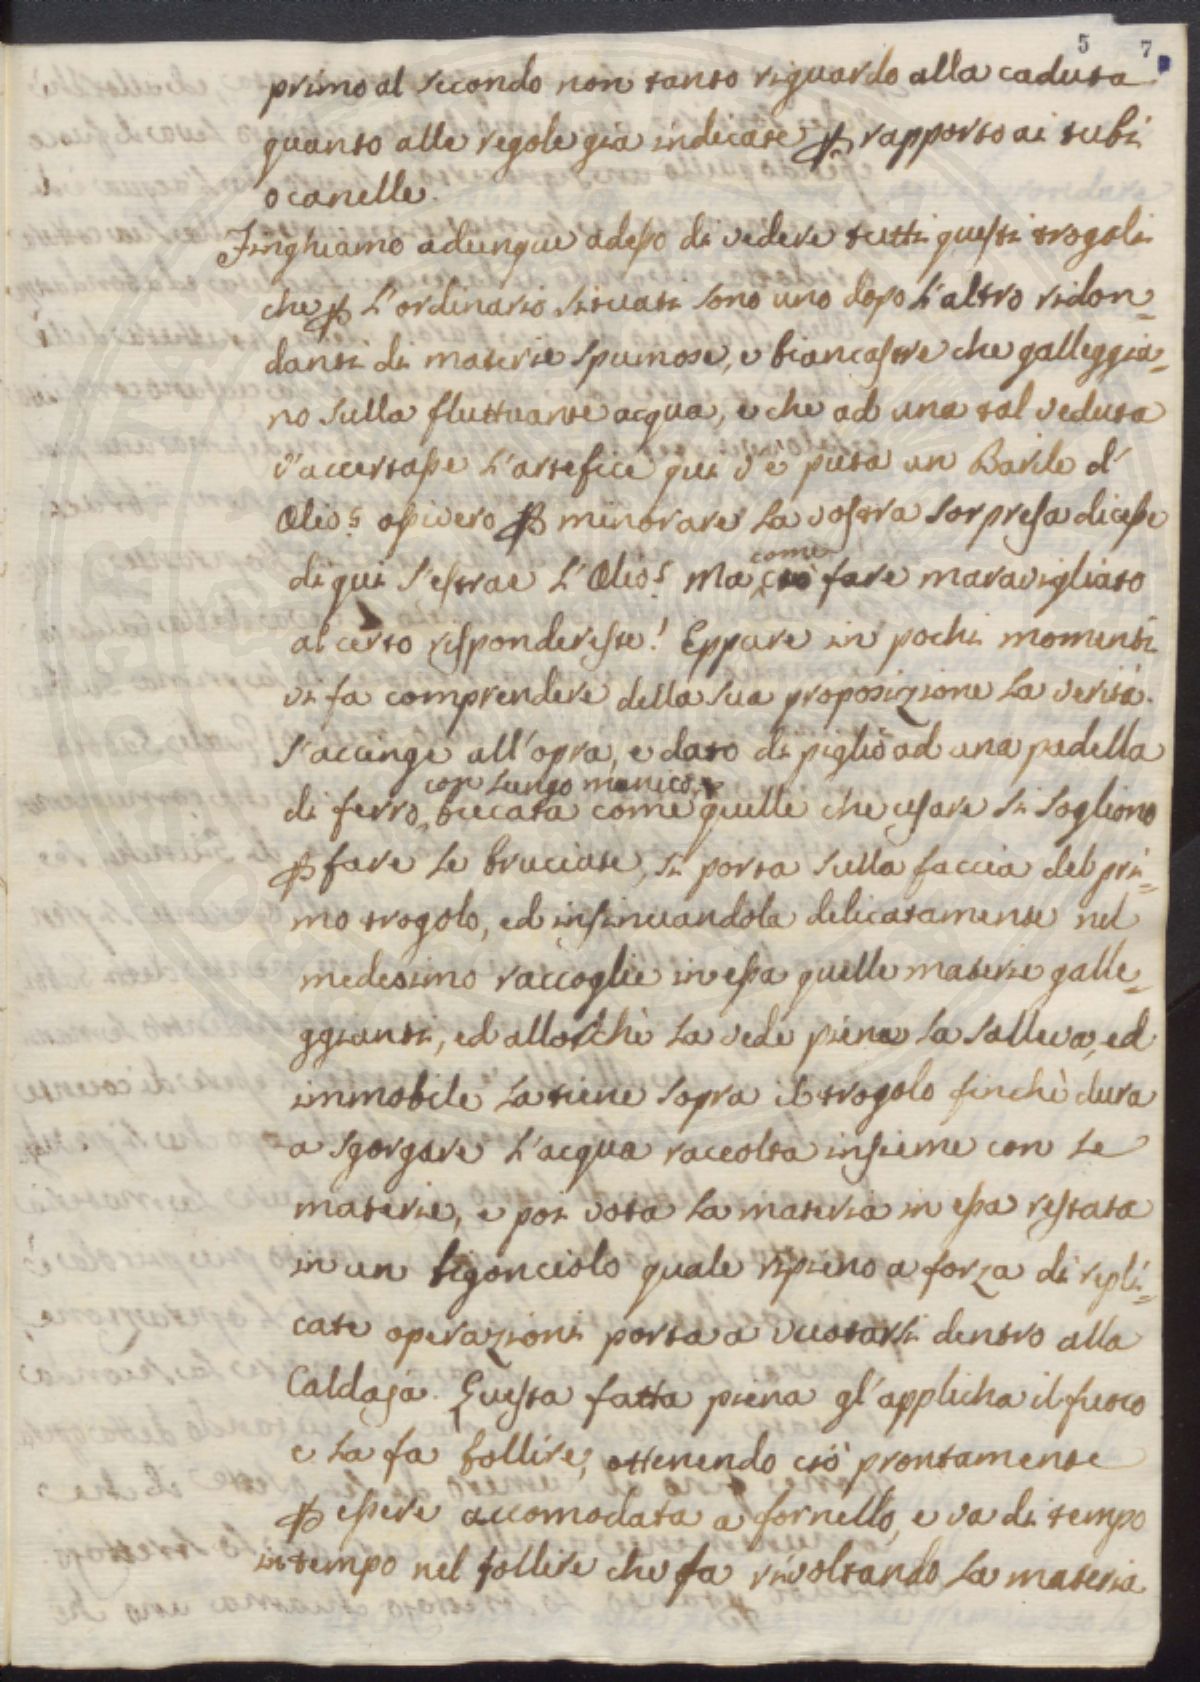 5 7
primo al secondo non tanto riguardo alla caduta
quanto alle regole gia indicate ꝑ rapporto ai tubi
o canelle.
Finghiamo adunque adesso di vedere tutti questi trogoli
che ꝑ l'ordinario situati sono uno dopo l'altro ridon=
danti di materie spumose, e biancastre che galleggia=
no sulla fluttuante acqua, e che ad una tal veduta
v'accertasse l'artefice qui v'è puta un Barile d'
Olio? ossivero ꝑ minorare la vostra sorpresa dicesse
di qui s'estrae l'Olio? Ma come ciò fare maravigliato
al certo rispondereste! Eppure in pochi momenti
vi fa comprendere della sua proposizione la verità.
S'accinge all'opra, e dato di piglio ad una padella
con lungo manico
di ferro, bucata come quelle che usare si sogliono
ꝑ fare le bruciate, si porta sulla faccia del pri=
mo trogolo, ed insinuandola delicatamente nel
medesimo raccoglie in essa quelle materie galle=
ggianti, ed allorchè la vede piena la solleva, ed
immobile la tiene sopra il trogolo finchè dura
a sgorgare l'acqua raccolta insieme con le
materie, e poi vota la materia in essa restata
in un bigonciolo quale ripieno a forza di repli=
cate operazioni porta a vuotarsi dentro alla
Caldaja. Questa fatta piena gl'applicha il fuoco
e la fa bollire, ottenendo ciò prontamente
ꝑ essere accomodata a fornello, e va di tempo
in tempo nel bollire che fa rivoltando la materia